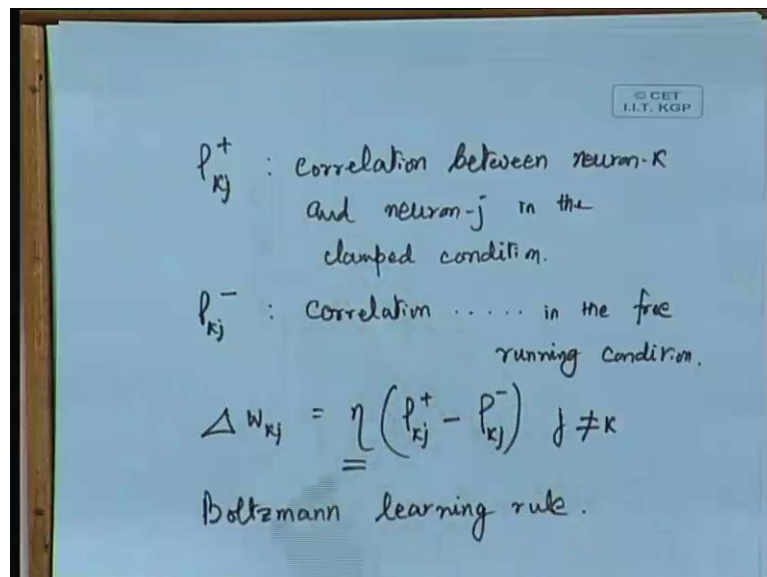 © CET
I.I.T. KGP
ρ⁺ₖⱼ : correlation between neuron-k
and neuron-j in the
clamped condition.
ρ⁻ₖⱼ : Correlation ..... in the free
running condition.
Δ wₖⱼ = η (ρ⁺ₖⱼ - ρ⁻ₖⱼ) j ≠ k
Boltzmann learning rule.